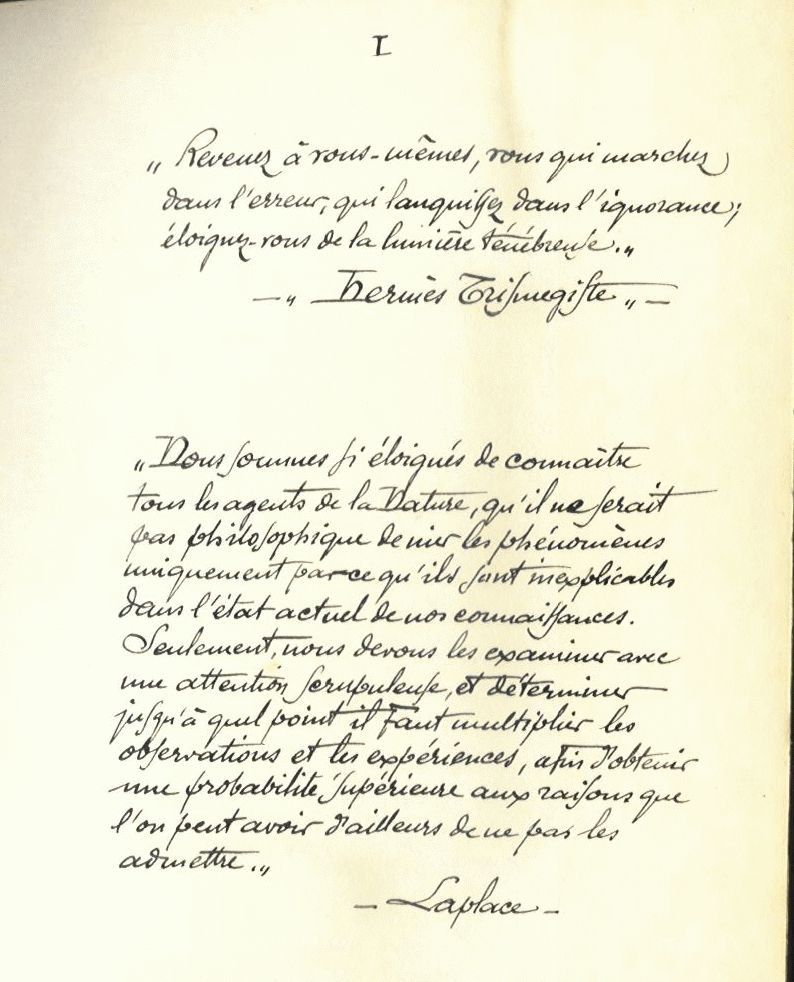 I
„ Revenez à vous-mêmes, vous qui marchez
dans l'erreur, qui languissez dans l'ignorance;
éloignez-vous de la lumière ténébreuse.„
—„ Hermès Trismegiste „—
„ Nous sommes si éloignés de connaître
tous les agents de la Nature, qu'il ne serait
pas philosophique de nier les phénomènes
uniquement parce qu'ils sont inexplicables
dans l'état actuel de nos connaissances.
Seulement, nous devons les examiner avec
une attention scrupuleuse, et déterminer
jusqu'à quel point il faut multiplier les
observations et les expériences, afin d'obtenir
une probabilité supérieure aux raisons que
l'on peut avoir d'ailleurs de ne pas les
admettre.„
— Laplace —